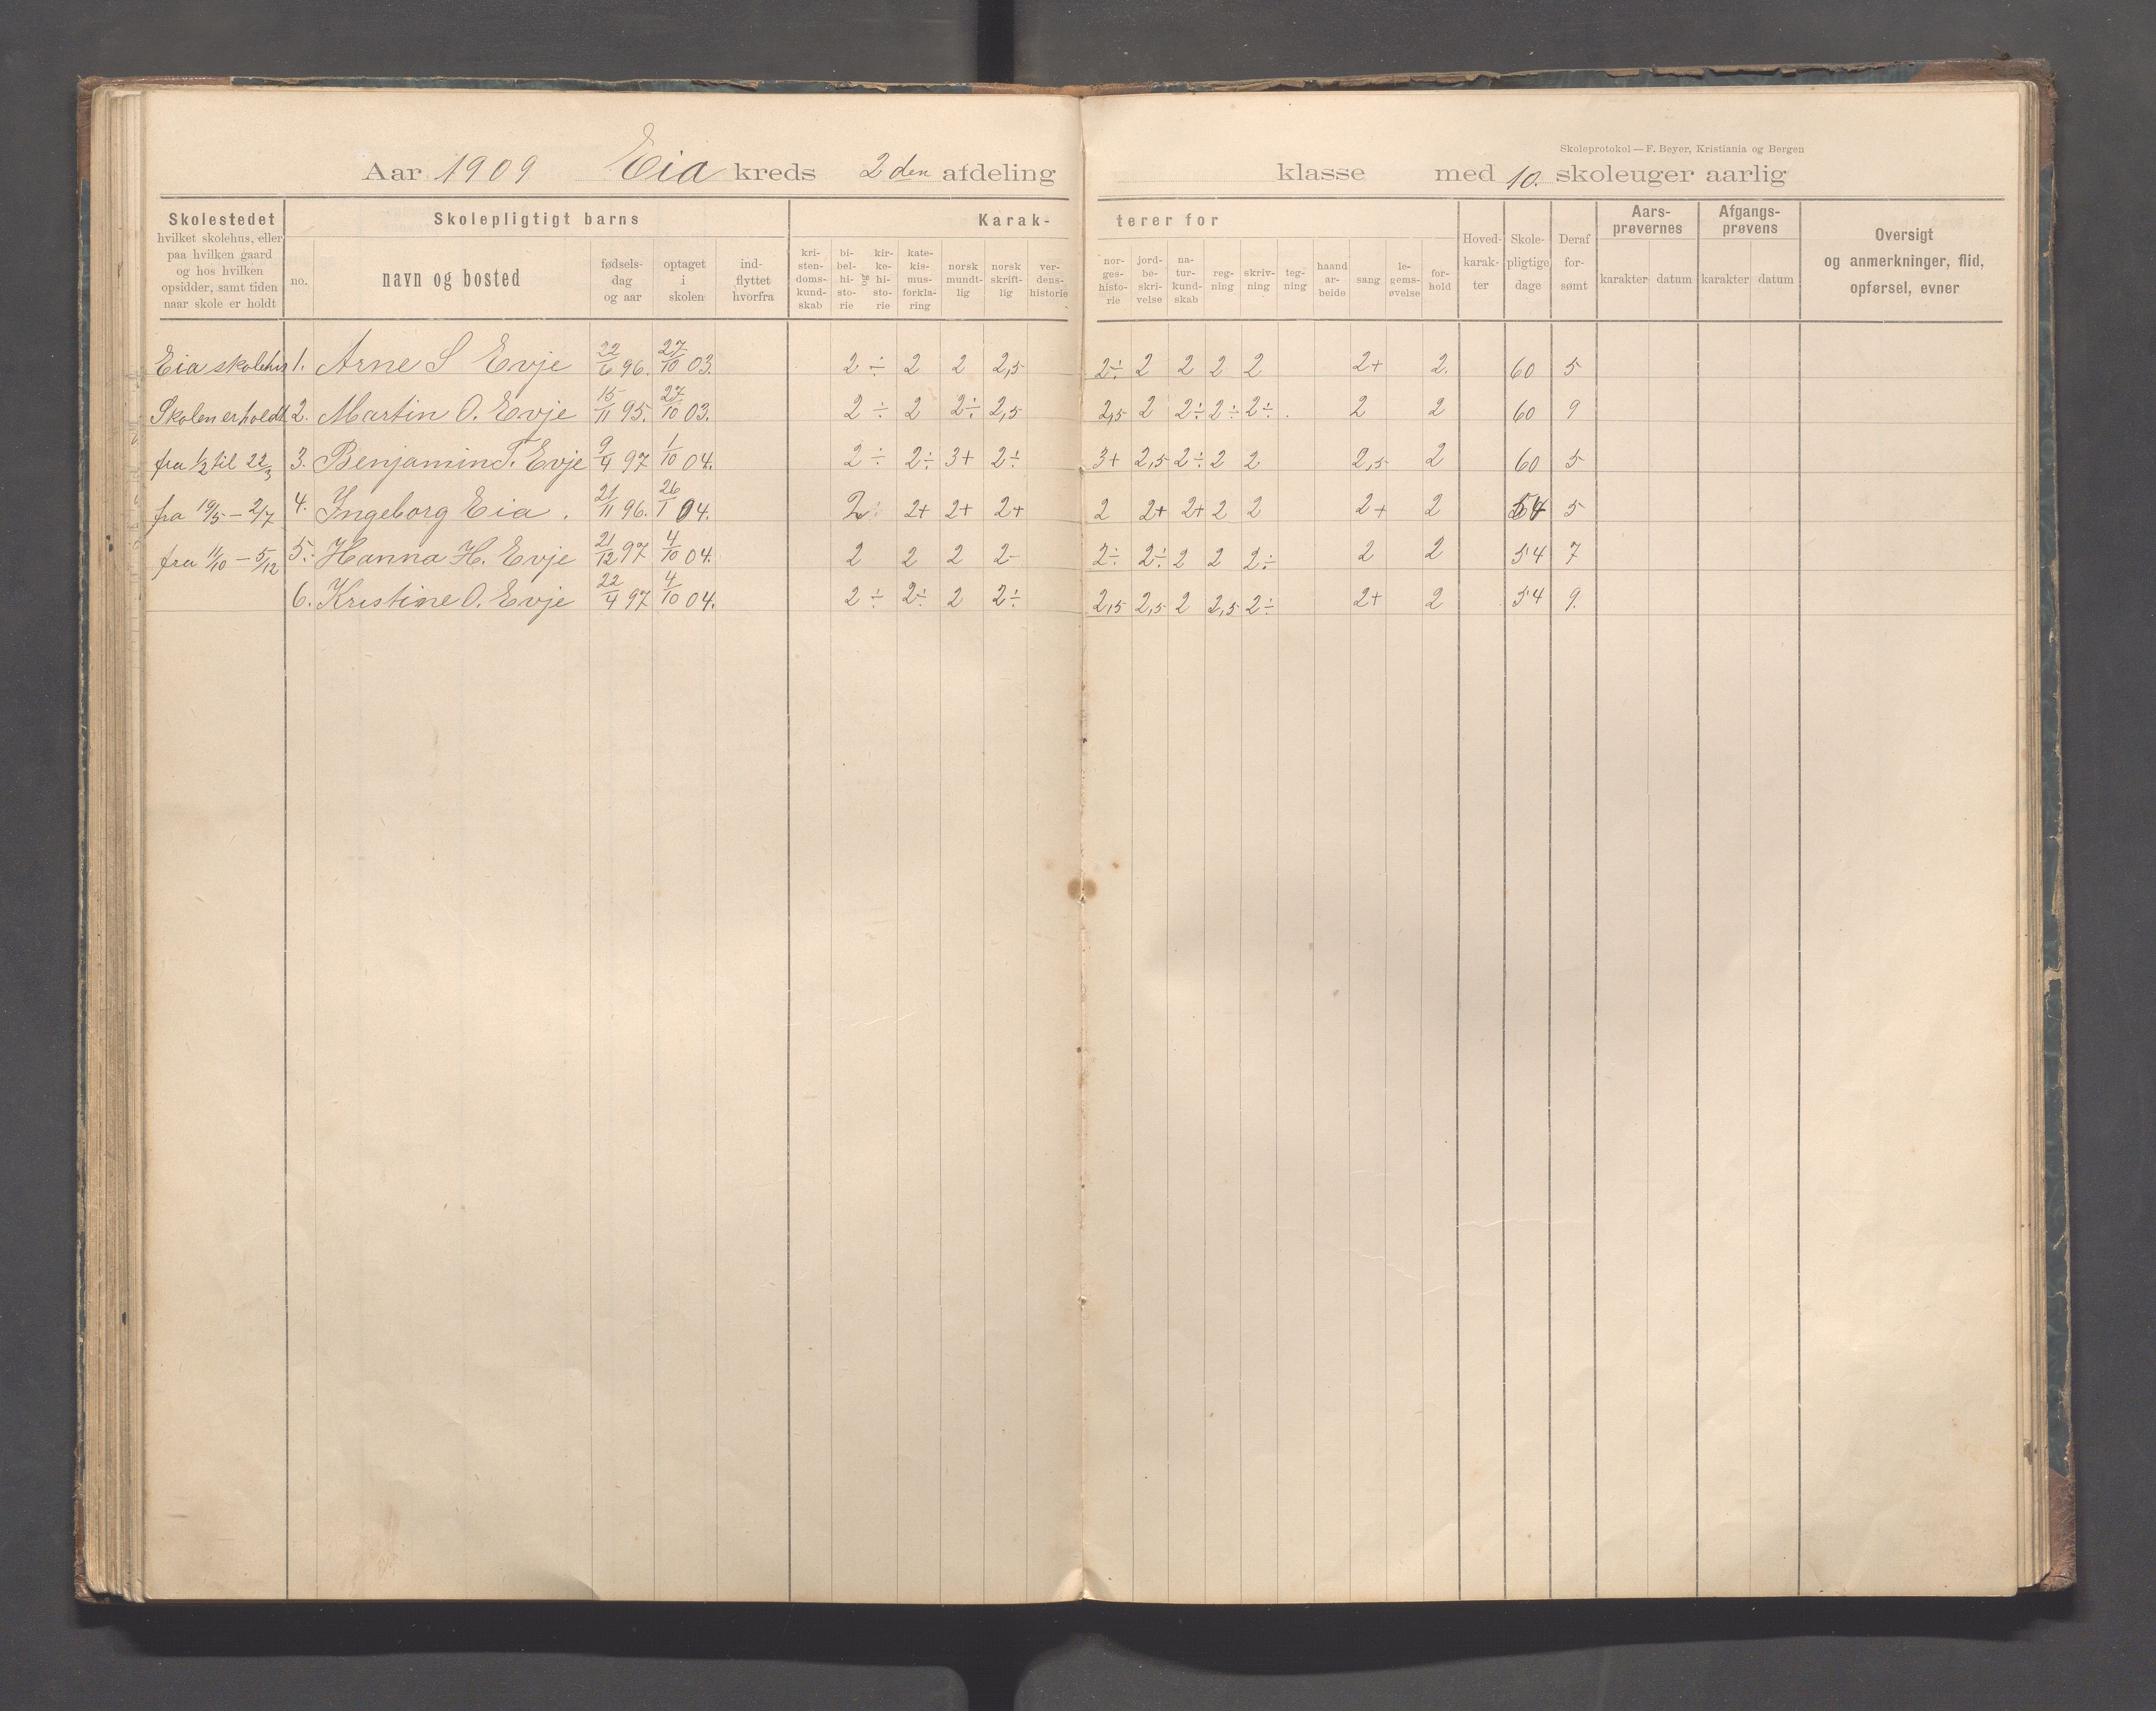 Skoleprotokol — F. Beyer, Kristiania og Bergen
Aar 1909 Eia kreds 2den afdeling klasse med 10. skoleuger aarlig
Skolestedet hvilket skolehus, eller paa hvilken gaard og hos hvilken opsidder, samt tiden naar skole er holdt
Skolepligtigt barns
no. navn og bosted fødsels-dag og aar optaget i skolen ind-flyttet hvorfra
Karak-terer for
kri-sten-doms-kund-skab bi-bel-hi-sto-rie og kir-ke-hi-sto-rie kate-kis-mus-forkla-ring norsk mundt-lig norsk skrift-lig ver-dens-historie nor-ges-histo-rie jord-be-skri-velse na-tur-kund-skab reg-ning skriv-ning teg-ning haand ar-beide sang le-gems-øvelse for-hold
Hoved-karak-ter Skole-pligtige dage Deraf for-sømt
Aars-prøvernes karakter datum Afgangs-prøvens karakter datum
Oversigt og anmerkninger, flid, opførsel, evner
Eia skolehus 1. Arne S Evje 22/6 96. 27/10 03. 2 ÷ 2 2 2,5 2÷ 2 2 2 2 2+ 2. 60 5
Skolen er holdt 2. Martin O. Evje 15/11 95. 27/10 03. 2 ÷ 2 2÷ 2,5 2,5 2 2÷ 2÷ 2÷ . 2 2 60 9
fra 1/2 til 22/3 3. Benjamin T. Evje 9/4 97 1/10 04. 2 ÷ 2÷ 3+ 2÷ 3+ 2,5 2÷ 2 2 2,5 2 60 5
fra 19/5 – 2/7 4. Ingeborg Eia . 21/11 96. 26/1 04. 2 2+ 2+ 2+ 2 2+ 2+ 2 2 2+ 2 54 5
fra 11/10 – 5/12 5. Hanna H. Evje 21/12 97 4/10 04. 2 2 2 2- 2÷ 2÷ 2 2 2÷ 2 2 54 7
6. Kristine O. Evje 22/4 97 4/10 04. 2 ÷ 2÷ 2 2÷ 2,5 2,5 2 2,5 2÷ 2+ 2 54 9.